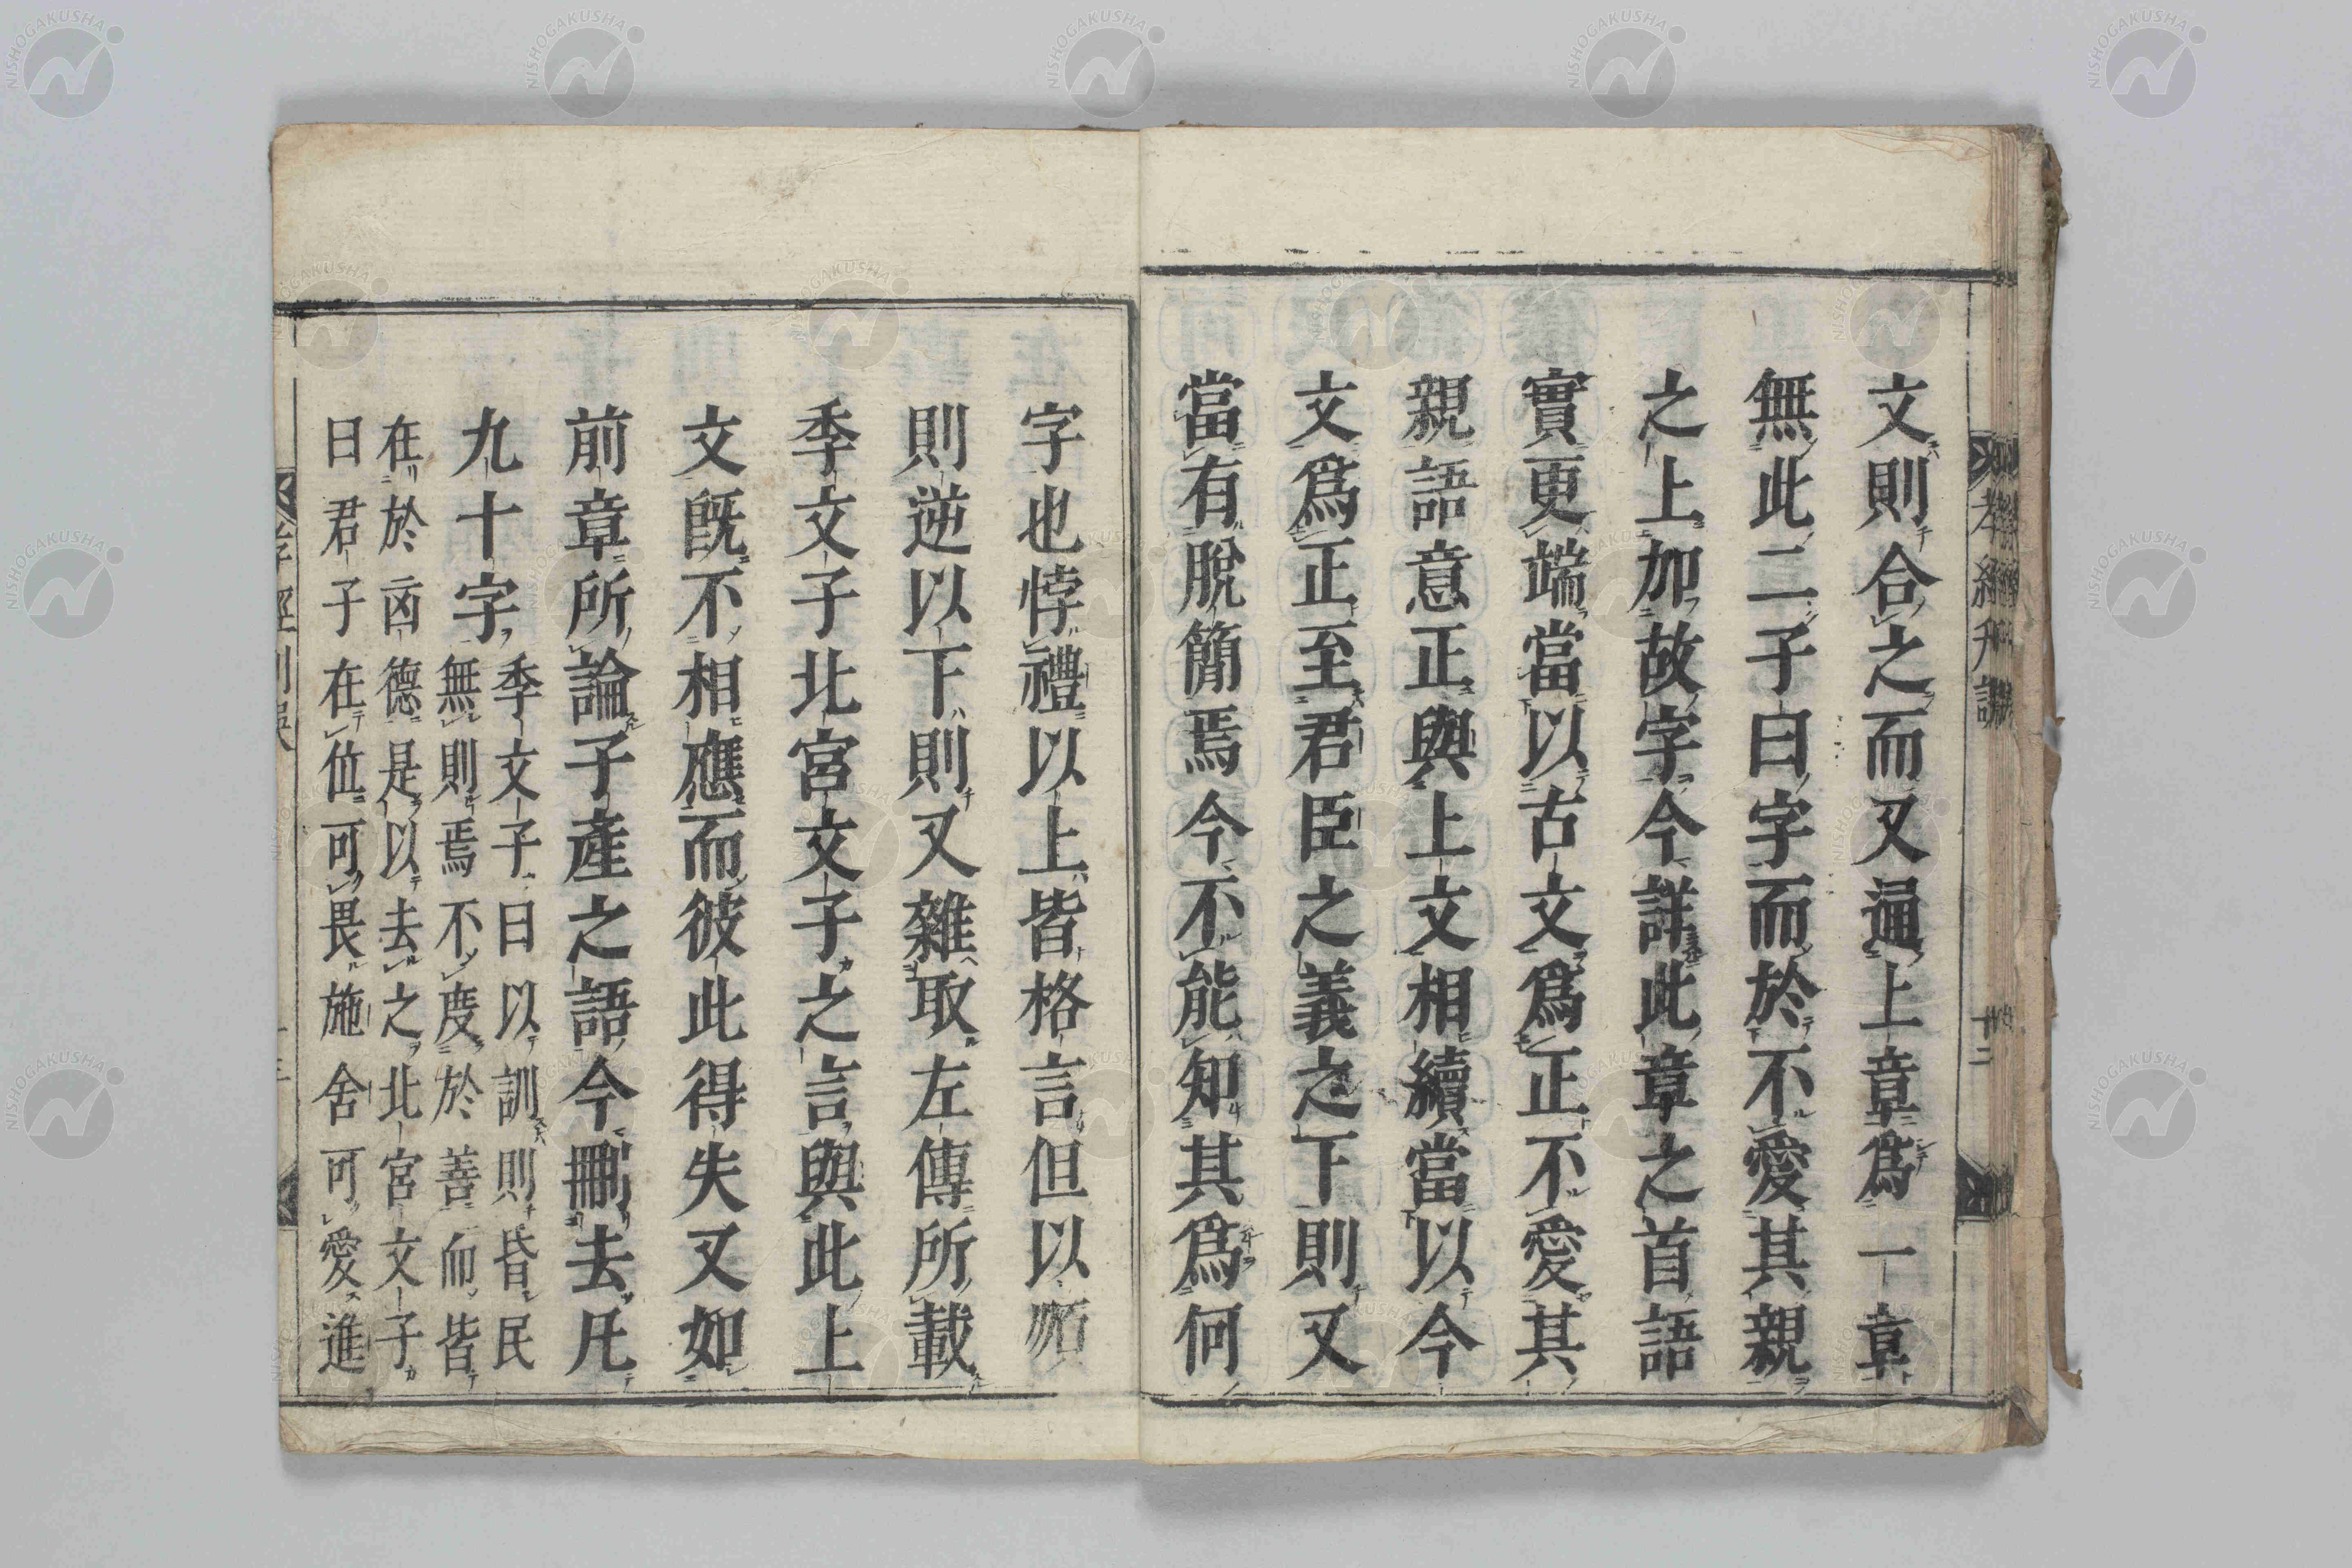 文則合之而又通上章爲一章
無此二子曰字而於不愛其親
之上加故字今詳此章之首語
實更端當以古文爲正不愛其
親語意正與上文相續當以今
文爲正至君臣之義之下則又
當有脫簡焉今不能知其爲何
字也悖禮以上皆格言但以
則逆以下則又雜取左傳所載
季文子北宮文子之言與此上
文既不相應而彼此得失又如
前章所論子產之語今刪去凡
九十字
季文子曰以訓則昏民
無則焉不度於善而皆
在於凶德是以去之北宮文子
曰君子在位可畏施舍可愛進
孝經刊誤
十二
NISHOGAKUSHA